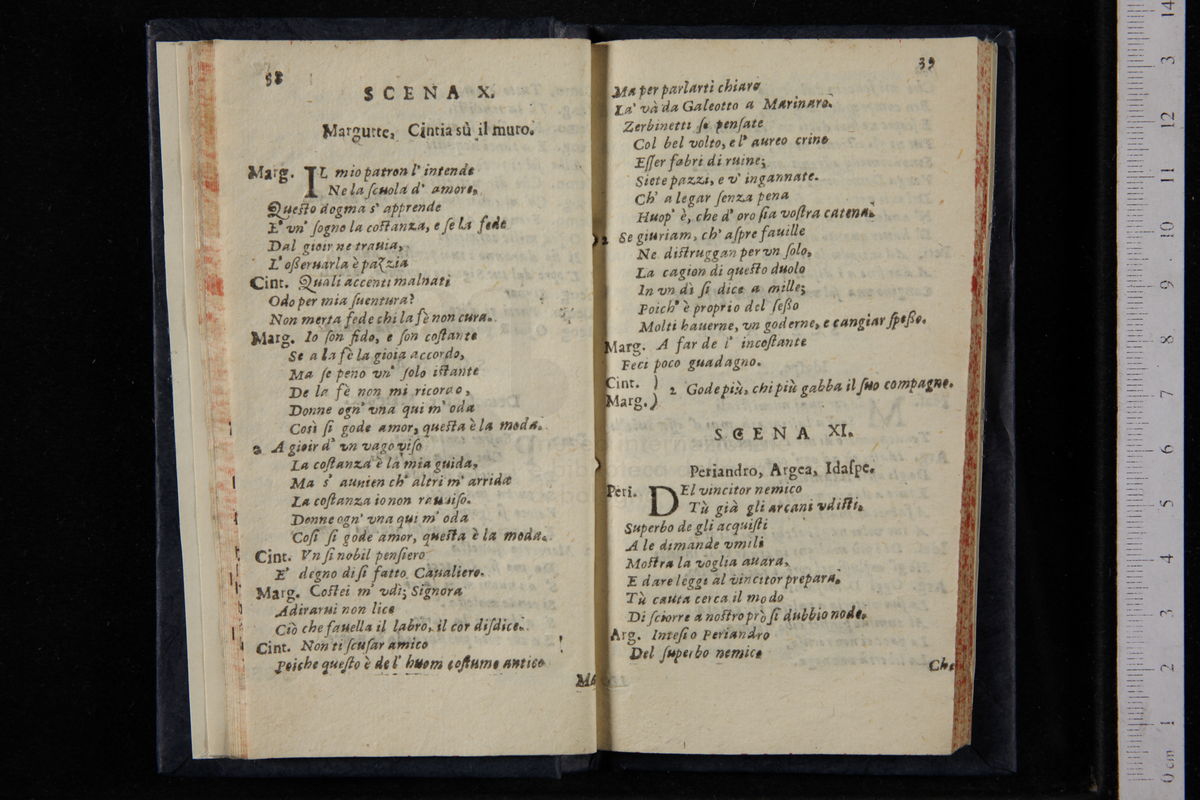 38
SCENA X.
Margutte, Cintia sù il muro.
Marg. IL mio patron l' intende
Ne la ſcuola d' amore,
Queſto dogma s' apprende
E' vn' ſogno la coſtanza, e ſe la fede
Dal gioir ne trauia,
L' oſſeruarla è pazzia
Cint. Quali accenti malnati
Odo per mia ſuentura?
Non merta fede chi la fè non cura.
Marg. Io ſon fido, e ſon coſtante
Se a la fè la gioia accordo,
Ma ſe peno vn' ſolo iſtante
De la fè non mi ricordo,
Donne ogn' vna qui m' oda
Così ſi gode amor, queſta è la moda.
2 A gioir d' vn vago viſo
La coſtanza è la mia guida,
Ma s' auuien ch' altri m' arrida
La coſtanza io non rauuiſo.
Donne ogn' vna qui m' oda
Coſi ſi gode amor, queſta è la moda.
Cint. Vn ſi nobil penſiero
E' degno di ſi fatto Caualiero.
Marg. Coſtei m' vdì; Signora
Adirarui non lice
Ciò che fauella il labro, il cor diſdice.
Cint. Non ti ſcuſar amico
Poiche queſto è de l' huom coſtume antico
Ma
39
Ma per parlarti chiaro
La' và da Galeotto a Marinaro.
Zerbinetti ſe penſate
Col bel volto, e l' aureo crine
Eſſer fabri di ruine;
Siete pazzi, e v' ingannate.
Ch' a legar ſenza pena
Huop' è, che d' oro ſia voſtra catena.
2 Se giuriam, ch' aſpre fauille
Ne diſtruggan per vn ſolo,
La cagion di queſto duolo
In vn dì ſi dice a mille;
Poich' è proprio del ſeſſo
Molti hauerne, vn goderne, e cangiar ſpeſſo.
Marg. A far de l' incoſtante
Feci poco guadagno.
Cint. )
Marg. ) 2 Gode più, chi più gabba il ſuo compagno.
SCENA XI.
Periandro, Argea, Idaſpe.
Peri. DEl vincitor nemico
Tù già gli arcani vdiſti,
Superbo de gli acquiſti
A le dimande vmili
Moſtra la voglia auara,
E dare leggi al vincitor prepara.
Tù cauta cerca il modo
Di ſciorre a noſtro prò ſi dubbio nodo.
Arg. Inteſi o Periandro
Del ſuperbo nemico
Che